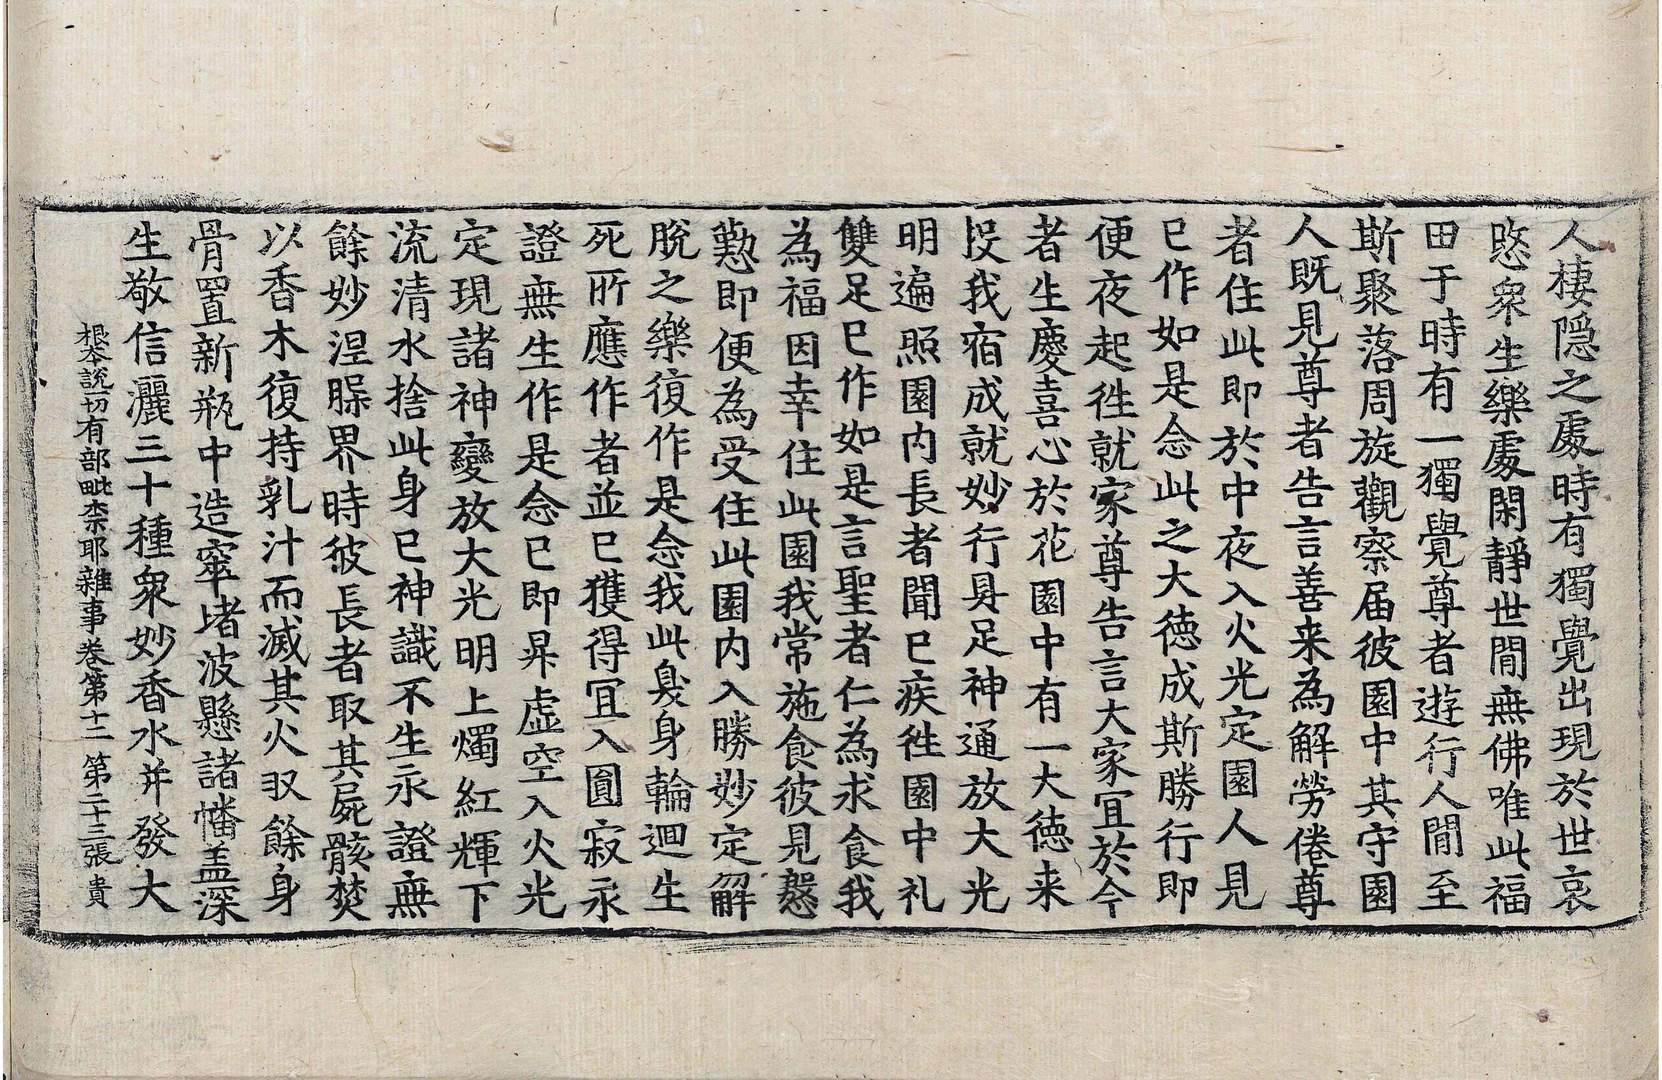 人棲隠之處時有獨覺出現於世哀
愍衆生樂處閑靜世間無佛唯此福
田于時有一獨覺尊者遊行人間至
斯聚落周旋觀察届彼園中其守園
人既見尊者告言善来為解勞倦尊
者住此即於中夜入火光定園人見
已作如是念此之大徳成斯勝行即
便夜起徃就家尊告言大家冝於今
者生慶喜心於花園中有一大徳来
投我宿成就妙行具足神通放大光
明遍照園内長者聞已疾徃園中礼
雙足已作如是言聖者仁為求食我
為福因幸住此園我常施食彼見慇
懃即便為受住此園内入勝妙定解
脫之樂復作是念我此臭身輪迴生
死所應作者並已獲得冝入圓寂永
證無生作是念已即昇虛空入火光
定現諸神變放大光明上燭紅輝下
流清水捨此身已神識不生永證無
餘妙涅槃界時彼長者取其屍骸焚
以香木復持乳汁而滅其火収餘身
骨置新瓶中造窣堵波懸諸幡盖深
生敬信灑三十種衆妙香水并發大
根本說一切有部毗柰耶雜事卷第十二 第二十三張 貴